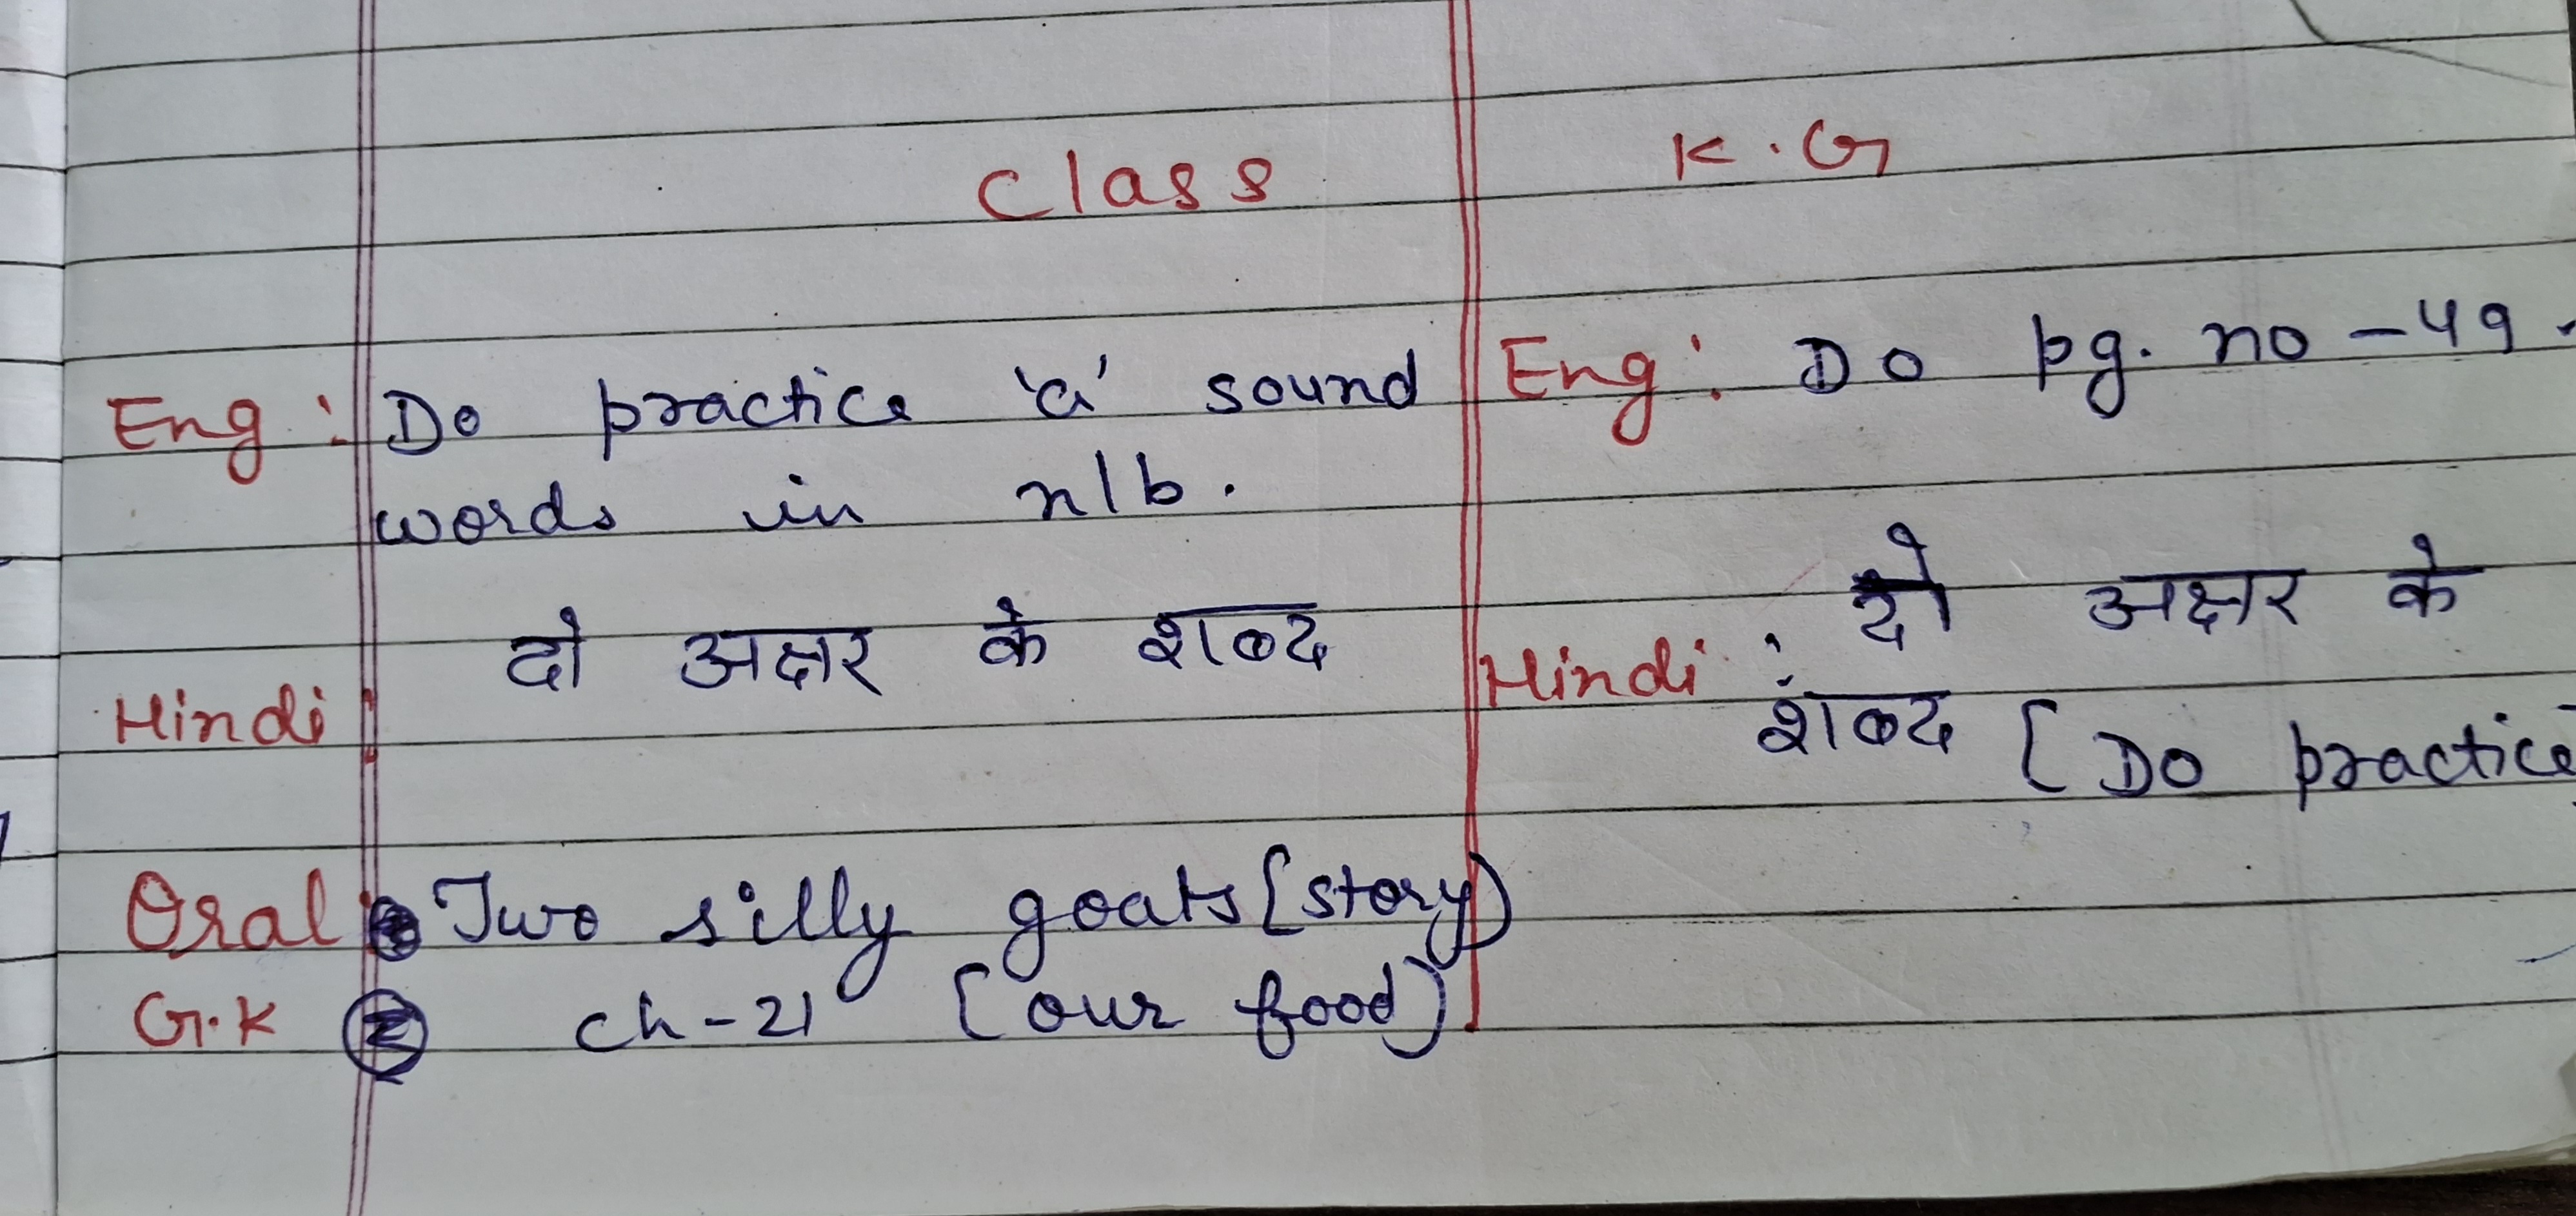 Class K.G
Eng : Do practice 'a' sound
words in n/b.
Hindi : दो अक्षर के शब्द
Oral Two silly goats (story)
G.K ② ch-21 (our food)
Eng : Do pg. no - 49.
Hindi : दो अक्षर के
शब्द [Do practice